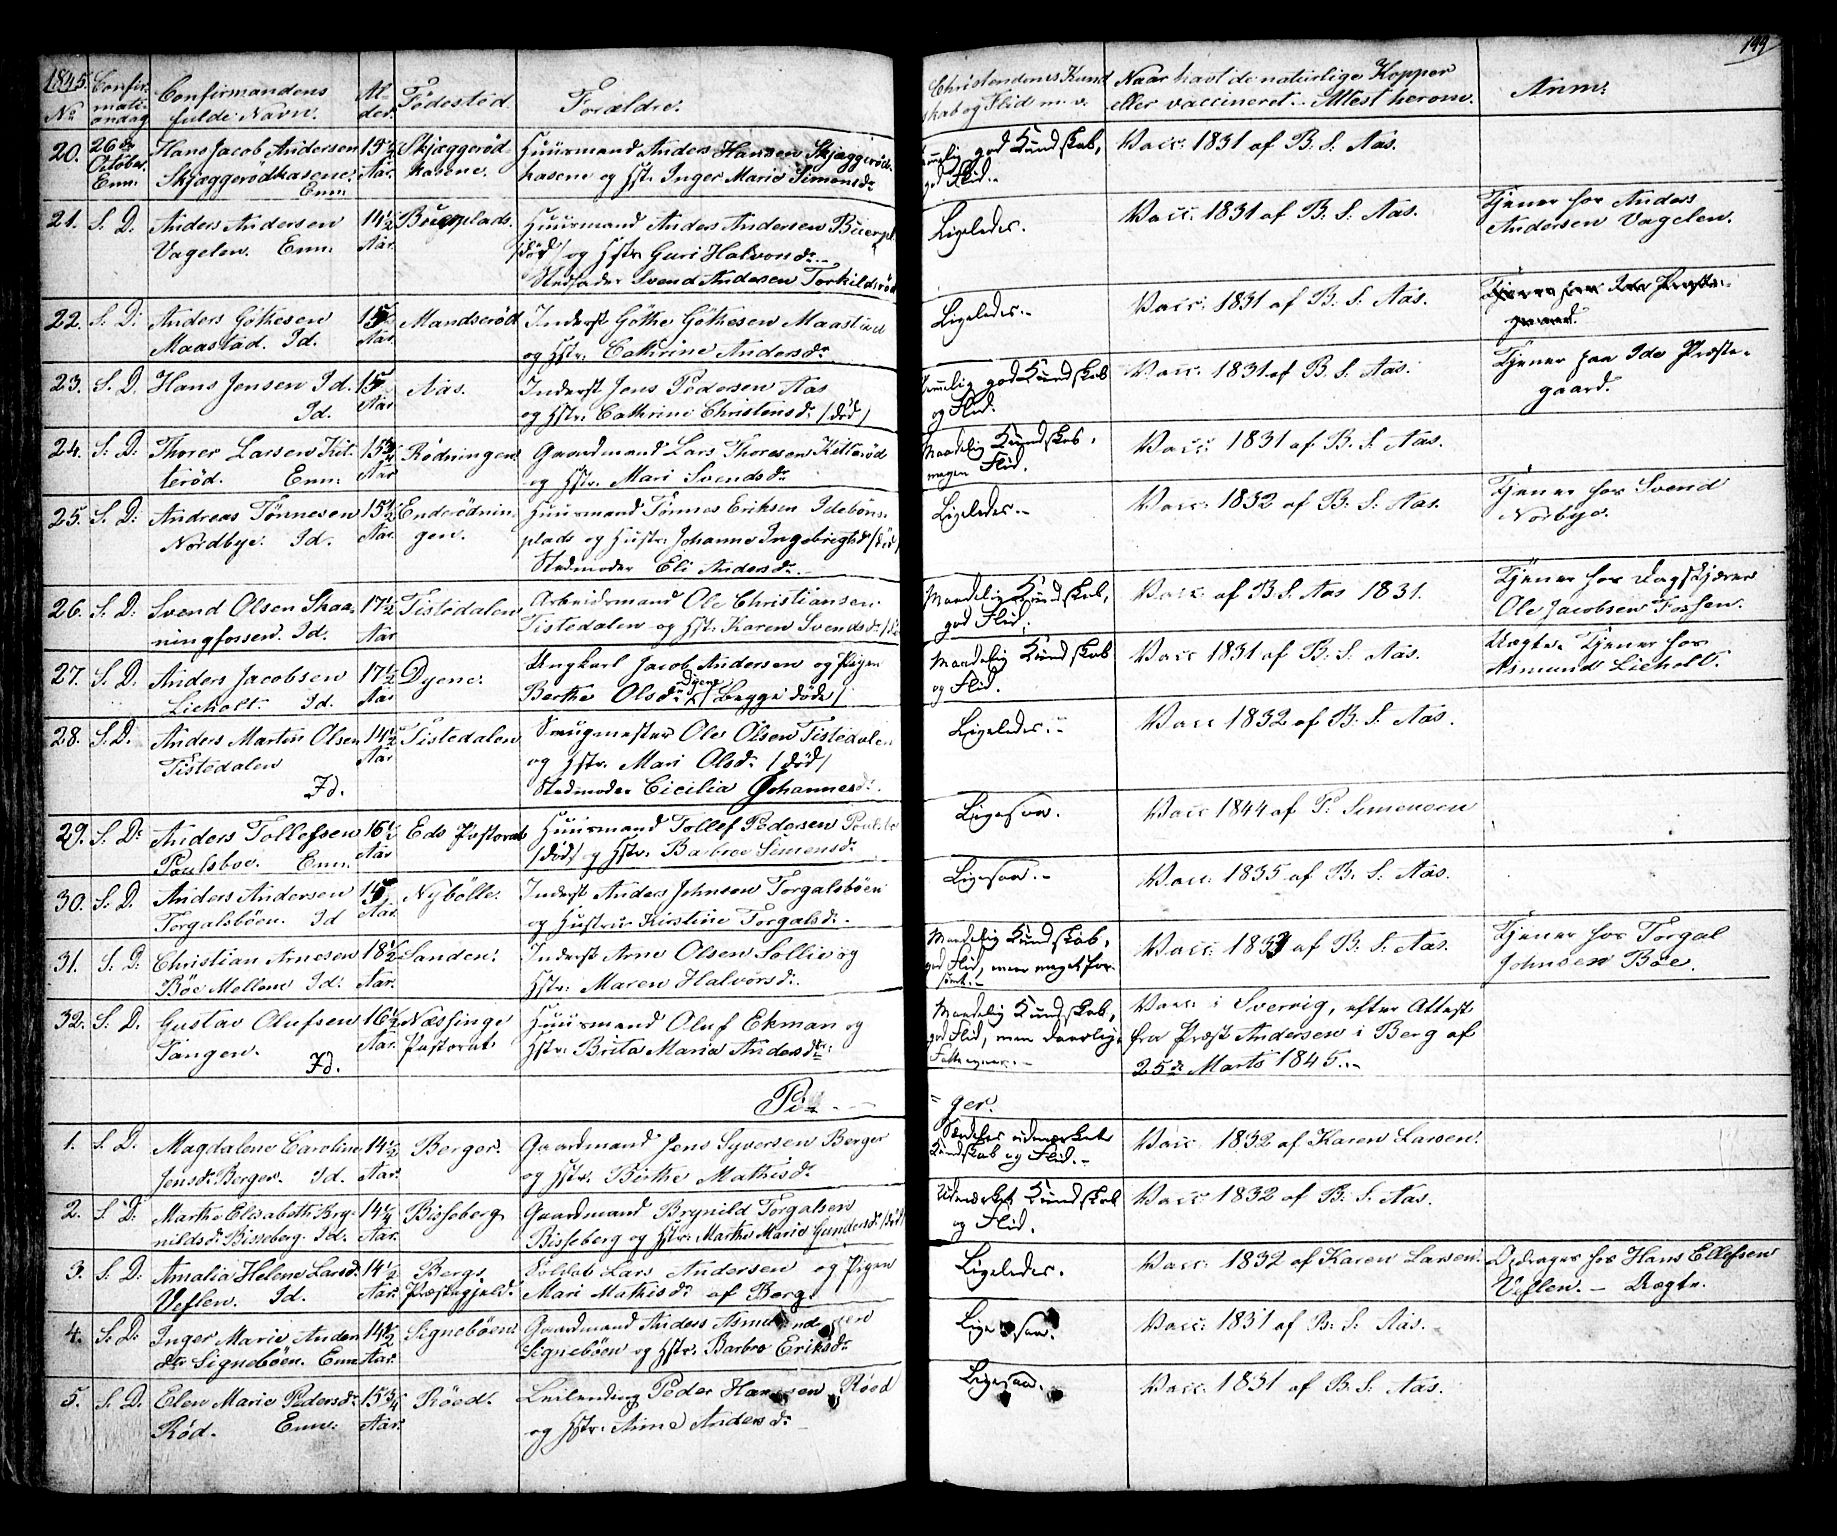 1845.
No
Confir-
mati-
onsdag
Confirmandens
fulde Navn.
Al-
der.
Fødested.
Forældre.
Christendoms Kund
skab og Flid m. v.
Naar havt de naturlige Kopper
eller vaccineret. Attest herom.
Anm:
199
20.
26de
October
Enn:
Hans Jacob Andersen
Skjæggerødkasene.
Enn:
15½
Aar.
Skjæggerød
kasene.
Huusmand Anders Hansen Skjæggerød-
kasene og Hstr. Inger Marie Simensdr
god Kundskab,
god Flid.
Vacc: 1831 af B. S. Aas.
21.
S. D.
Anders Andersen
Vagelen. Enn:
14½
Aar.
Buerplads.
Huusmand Anders Andersen Buerpl.
/død/ og Hstr. Guri Halvorsdr.
Stedfader Svend Andersen Torkildsrød
Ligeledes.
Vacc. 1831 af B. S. Aas.
Tjener hos Anders
Andersen Vagelen.
22.
S. D:
Anders Gøthesen
Maastad. Id.
15
Aar.
Mandserød
Inderst Gøthe Gøthesen Maastad
og Hstr. Cathrine Andersdr
Ligeledes.
Vacc: 1831 af B. S. Aas.
23.
S. D.
Hans Jensen Id.
Id.
15
Aar
Aas.
Inderst Jens Pedersen Aas
og Hstr. Cathrine Christensdr /død/
Temmelig god Kundskab
og Flid.
Vacc: 1831 af B. S. Aas.
Tjener paa Ide Præste-
gaard.
24.
S. D.
Thorer Larsen Kit-
terød. Enn:
15¾
Aar
Rødningen.
Gaardmand Lars Thoresen Kitterød
og Hstr. Mari Svendsdr
Maadelig Kundskab,
megen Flid.
Vacc: 1831 af B. S. Aas.
25.
S. D:
Andreas Tønnesen
Nordbye. Id.
15½
Aar.
Enderødnin-
gen.
Huusmand Tønnes Eriksen Idebøns-
plads og Hustr. Johanne Ingebregtsdr /død/
Stedmoder Eli Andersdr.
Ligeledes.
Vacc: 1832 af B. S. Aas.
Tjener hos Svend
Norbye.
26.
S. D.
Svend Olsen Skaa-
ningfossen. Id.
17½
Aar
Tistedalen
Arbeidsmand Ole Christiansen
Tistedalen og Hstr. Karen Svendsdr
Maadelig Kundskab,
god Flid.
Vacc: af B. S. Aas 1831.
Tjener hos Dagskjærer
Ole Jacobsen Fossen.
27.
S. D:
Anders Jacobsen
Lieholt. Id.
17½
Aar
Dyene.
Ungkarl Jacob Andersen og Pigen
Berthe Olsdr Dyene /begge døde/
Maadelig Kundskab
og Flid.
Vacc 1831 af B. S. Aas.
Uægte. Tjener hos
Asmund Lieholt.
28.
S. D.
Anders Martin Olsen
Tistedalen
Id.
14½
Aar
Tistedalen
Saugmester Ole Olsen Tistedalen
og Hstr. Mari Olsdr /død/
Stedmoder Cicilia Johannesdr.
Ligeledes.
Vacc 1832 af B. S. Aas.
29.
S. D:
Anders Tollefsen
Poulsboe. Enn:
16½
Aar
Eds Pastorat
Huusmand Tollef Pedersen Poulsbo
/død/ og Hstr. Barbroe Simensdr.
Ligesaa.
Vacc 1844 af P. Simensen
30.
S. D.
Anders Andersen
Torgalsbøen. Id
15
Aar.
Nybølle.
Inderst Anders Johnsen Torgalsbøen
og Hustrue Kirstine Torgalsdr.
Ligesaa.
Vacc. 1835 af B. S. Aas.
31.
S. D:
Christian Arnesen
Bøe Mellem Id.
18½
Aar.
Sanden.
Inderst Arne Olsen Sollie og
Hstr. Maren Halvorsdr.
Maadelig Kundskab,
god Flid, men meget for-
sømt.
Vacc: 1833 af B. S. Aas.
Tjener hos Torgal
Johnsen Bøe.
32.
S. D.
Gustav Olufsen
Tangen.
Id.
16½
Aar.
Næssinge
Pastorat.
Huusmand Oluf Ekman og
Hstr. Brita Maria Andersdtr.
Maadelig Kundskab,
god Flid, men daarlig
Fatteevne.
Vacc: i Sverrig, efter Attest
fra Præst Andersen i Berg af
25de Marts 1845.
Pi-
ger.
1.
S. D.
Magdalene Caroline
Jensdr. Berger. Id.
14½
Aar.
Berger.
Gaardmand Jens Syversen Berger
og Hstr. Birthe Mathisdr.
Særdeles udmærket
Kundskab og Flid.
Vacc: 1832 af Karen Larsen.
2.
S. D:
Marthe Elisabeth Bry-
nildsdr. Bisseberg. Id.
14¼
Aar.
Bisseberg
Gaardmand Brynild Torgalsen
Bisseberg og Hstr. Marthe Marie Gundersdr /død/
Udmærket Kundskab
og Flid.
Vacc 1832 af B. S. Aas.
3.
S. D.
Amalia Helene Larsdr.
Veflen. Id.
14½
Aar.
Bergs
Præstegjeld.
Soldat Lars Andersen og Pigen
Mari Mathisdr. af Berg.
Ligeledes.
Vacc: 1832 af Karen Larsen.
Opdrages hos Hans Ellefsen
Veflen. - Uægte.
4.
S. D.
Inger Marie Anders
dtr Signebøen. Enn
14½
Aar.
Signebøen.
Gaardmand Anders Asmundsen
Signebøen og Hstr. Barbro Eriksdr
Ligesaa.
Vacc: 1831 af B. S. Aas.
5.
S. D.
Elen Marie Pedersdr.
Rød. Enn:
15¾
Aar.
Røed.
Leilending Peder Hansen Røed
og Hstr. Anne Andersdr
Ligesaa.
Vacc: 1831 af B. S. Aas.